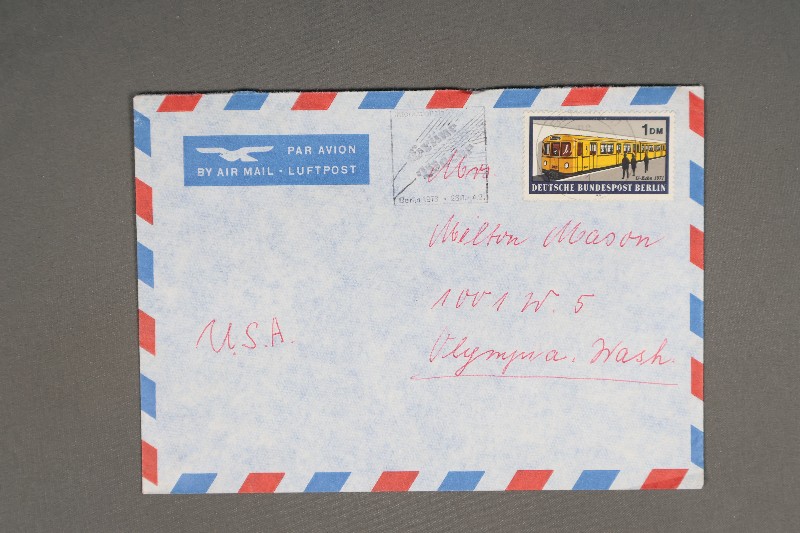 PAR AVION
BY AIR MAIL - LUFTPOST
Grüne
Woche
Berlin 1973
1 DM
U-Bahn 1971
DEUTSCHE BUNDESPOST BERLIN
Mrs
Milton Mason
1001 W. 5
Olympia. Wash.
U.S.A.